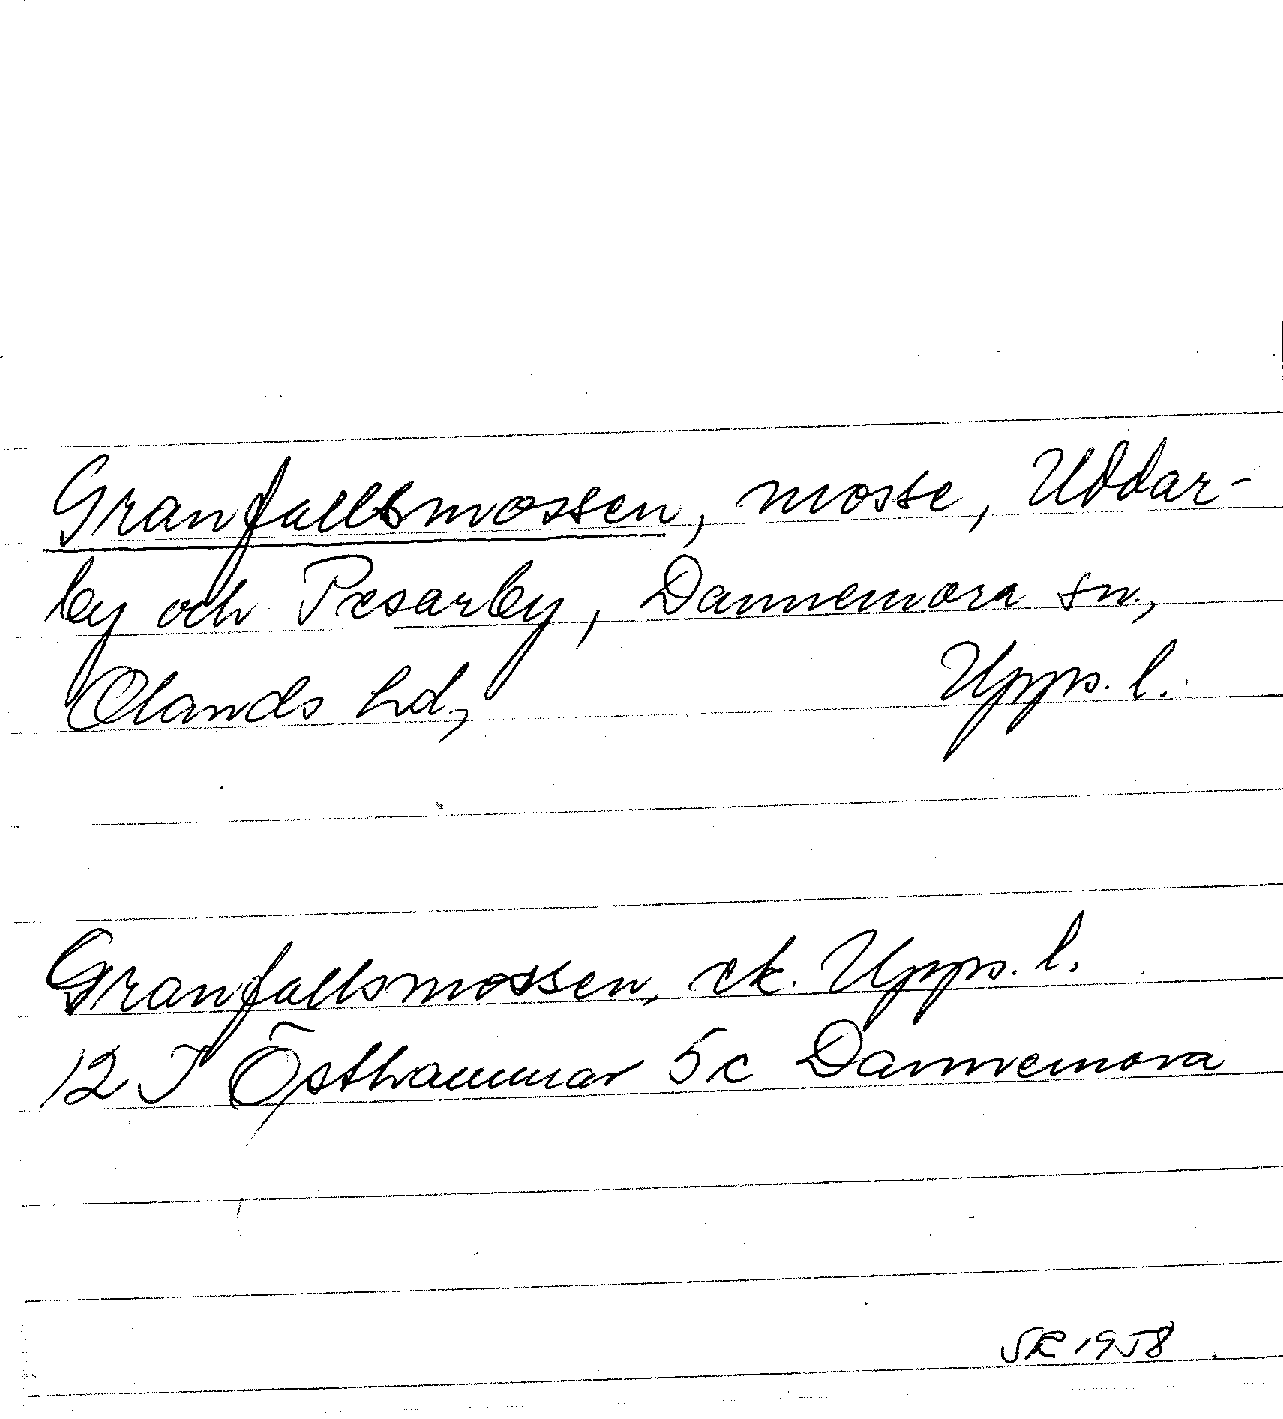 Granfallsmossen, mosse, Uddar-
by och Pesarby, Dannemora sn,
Olands hd, Upps. l.
Granfallsmossen, ek. Upps. l.
12 I Östhammar 5c Dannemora
SR 1958